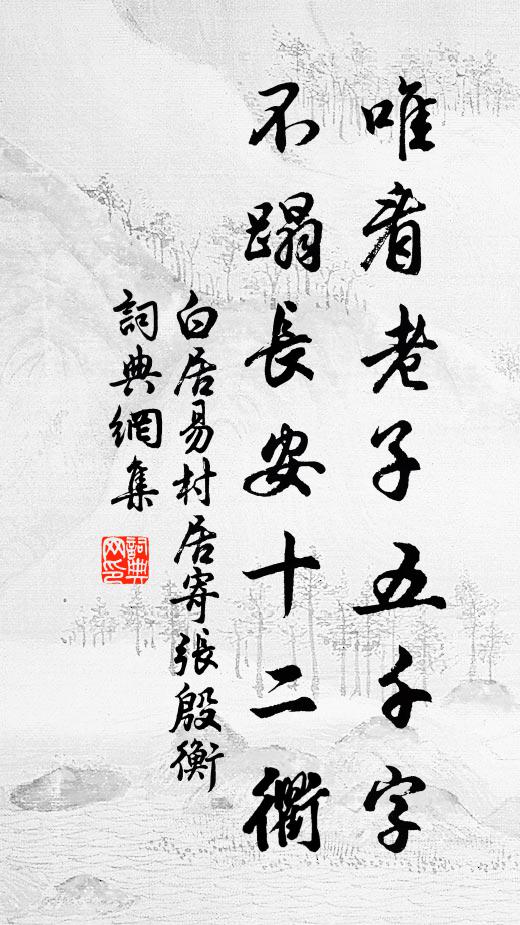 唯看老子五千字
不蹋長安十二衢
白居易村居寄張殷衡
詞典網集
詞典網印